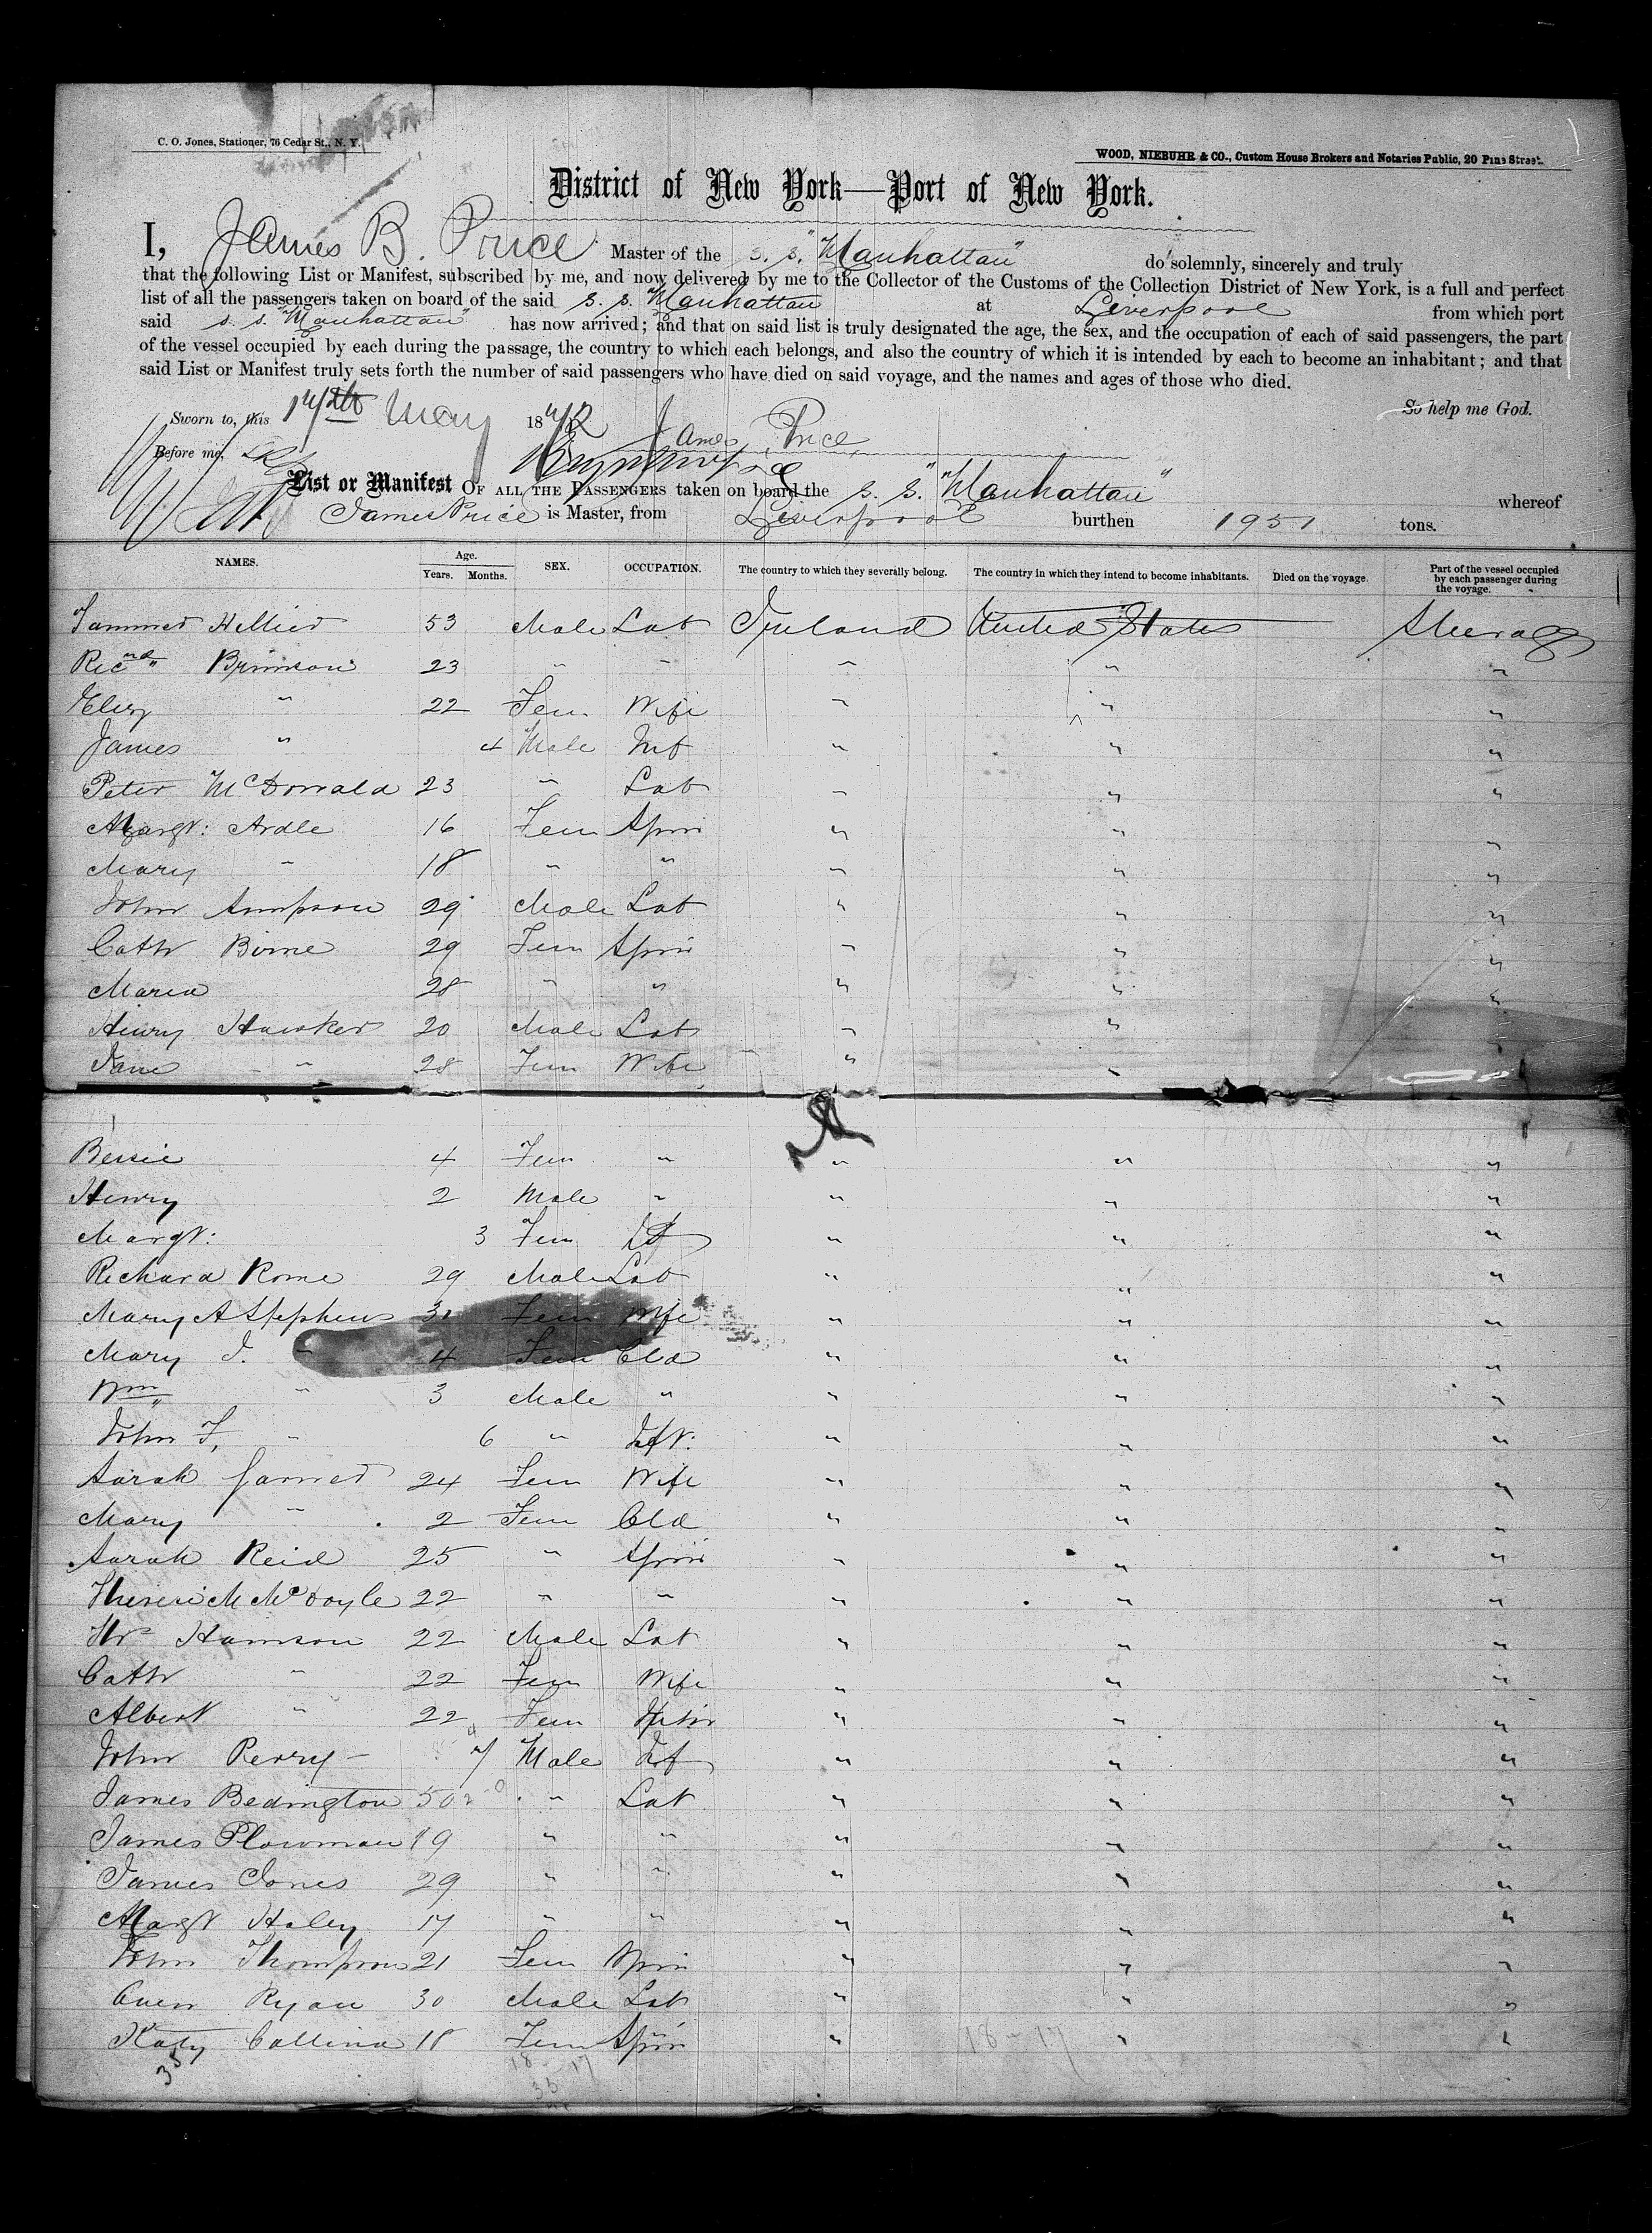 C. O. Jones, Stationer, 76 Cedar St., N. Y.
WOOD, NIEBUHR & CO., Custom House Brokers and Notaries Public, 20 Pine Street.
District of New York—Port of New York.
I, James B. Price Master of the S. S. "Manhattan" do solemnly, sincerely and truly
that the following List or Manifest, subscribed by me, and now delivered by me to the Collector of the Customs of the Collection District of New York, is a full and perfect
list of all the passengers taken on board of the said S. S. "Manhattan at Liverpool from which port
said S. S. "Manhattan" has now arrived; and that on said list is truly designated the age, the sex, and the occupation of each of said passengers, the part
of the vessel occupied by each during the passage, the country to which each belongs, and also the country of which it is intended by each to become an inhabitant; and that
said List or Manifest truly sets forth the number of said passengers who have died on said voyage, and the names and ages of those who died.
So help me God.
Sworn to, this 14th May 1872
James Price
Before me,
List or Manifest OF ALL THE PASSENGERS taken on board the S. S. "Manhattan" whereof
James Price is Master, from Liverpool burthen 1951 tons.
NAMES. Age. Years. Months. SEX. OCCUPATION. The country to which they severally belong. The country in which they intend to become inhabitants. Died on the voyage. Part of the vessel occupied by each passenger during the voyage.
Hellier 53 Male Lab Ireland United States Steerage
Ricnd " Brimson 23 " " " " "
Eliz " 22 Fem Wife " " "
James " 4 Male Inf " " "
Peter McDonald 23 " Lab " " "
Margt: Ardle 16 Fem Spin " " "
Mary " 18 " " " " "
John Simpson 29 Male Lab " " "
Cath Birne 29 Fem Spin " " "
Maria 28 " " " " "
Henry Hawker 20 Male Lab " " "
Jane " 28 Fem Wife " " "
Bessie 4 Fem " " " "
Henry 2 Male " " " "
Margt: 3 Fem Inf " " "
Richard Rome 29 Male Lab " " "
Mary A Stephens 30 Fem Wife " " "
Mary J. " 4 Fem Cld " " "
Wm " " 3 Male " " " "
John F, " 6 " Inft: " " "
Sarah 24 Fem Wife " " "
Mary " 2 Fem Cld " " "
Sarah Reid 25 " Spin " " "
McDoyle 22 " " " " "
Wm 22 Male Lab " " "
Cath " 22 Fem Wife " " "
Albert " 22 Fem " " "
John Perry 7 Male Inf " " "
James Bedington 50 " Lab " " "
James Plowman 19 " " " " "
James Jones 29 " " " " "
Margt Haley 17 " " " " "
John Thompson 21 Fem Spin " " "
Owen Ryan 30 Male Lab " " "
Katy Collina 18 Fem Spin " " "
35
18 17
35
18 - 17